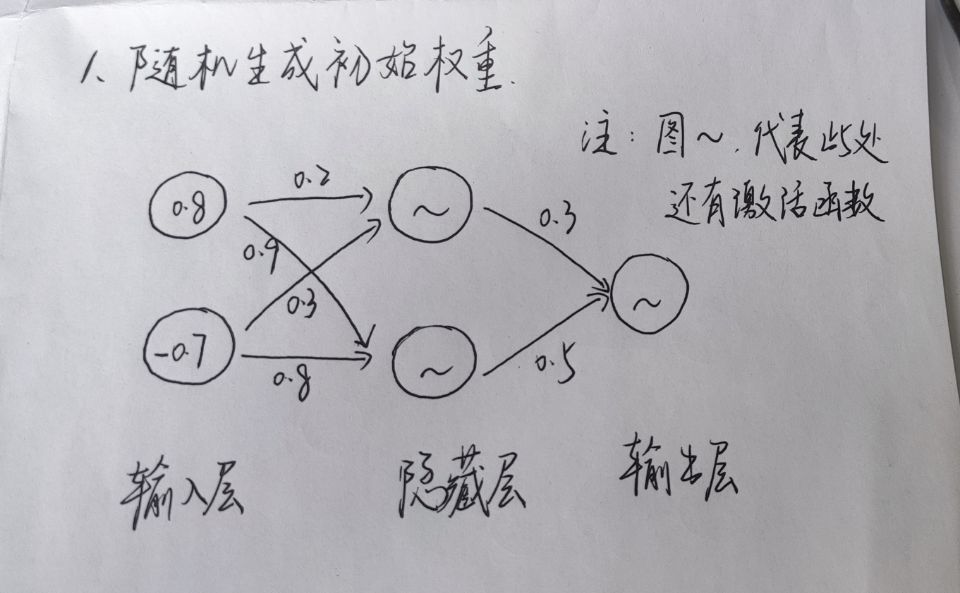 1、随机生成初始权重.
注：图~.代表此处
还有激活函数
0.8
0.2
~
0.3
0.9
0.3
~
-0.7
0.8
~
0.5
输入层
隐藏层
输出层